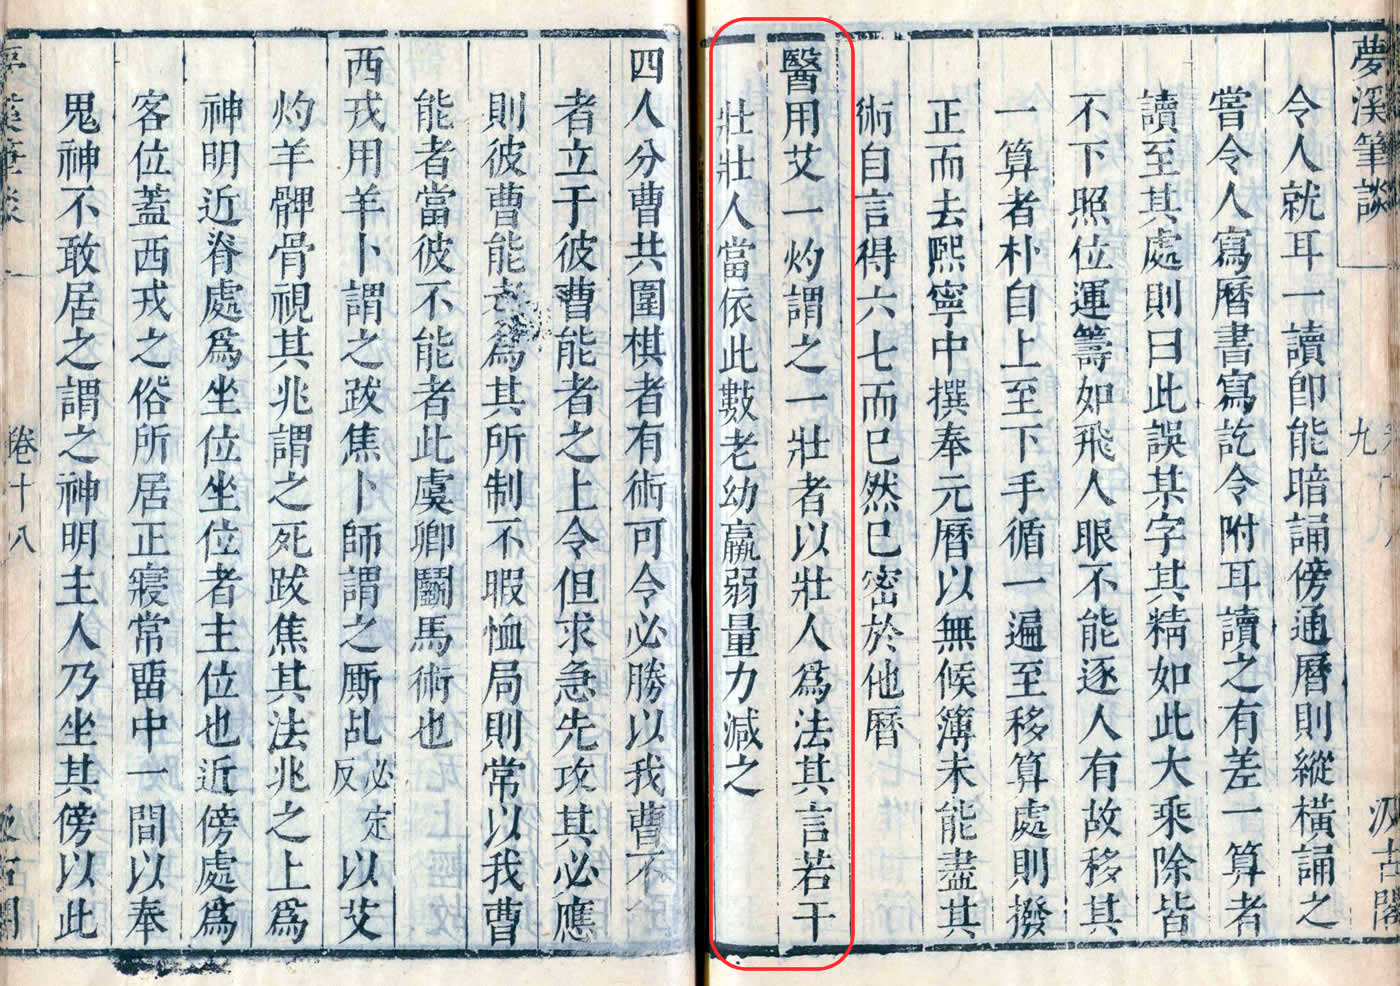 夢溪筆談
九
汲古閣
令人就耳一讀卽能暗誦傍通曆則縱橫誦之
嘗令人寫曆書寫訖令附耳讀之有差一算者
讀至其處則曰此誤某字其精如此大乘除皆
不下照位運籌如飛人眼不能逐人有故移其
一算者朴自上至下手循一遍至移算處則撥
正而去熙寧中撰奉元曆以無候簿未能盡其
術自言得六七而已然已密於他曆
醫用艾一灼謂之一壯者以壯人爲法其言若干
壯壯人當依此數老幼羸弱量力減之
四人分曹共圍棋者有術可令必勝以我曹不
者立于彼曹能者之上令但求急先攻其必應
則彼曹能者爲其所制不暇恤局則常以我曹
能者當彼不能者此虞卿鬭馬術也
西戎用羊卜謂之跋焦卜師謂之厮乩必定反以艾
灼羊髀骨視其兆謂之死跋焦其法兆之上爲
神明近脊處爲坐位坐位者主位也近傍處爲
客位蓋西戎之俗所居正寢常畱中一間以奉
鬼神不敢居之謂之神明主人乃坐其傍以此
卷十八